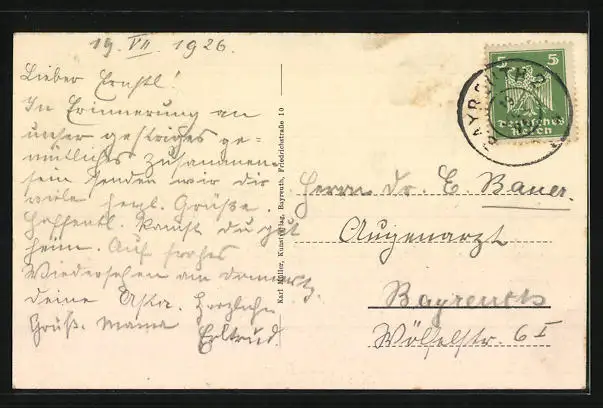 19. VII. 1926.
Lieber Ernstl!
In Erinnerung an
unser gestriges ge-
mütliches Zusammen-
sein senden wir dir
viele herzl. Grüße.
Hoffentl. kamst du gut
heim. Auf frohes
Wiedersehen am Donnerstg.
deine Asta. Herzliche
Grüße Mama Eltrud
Karl Müller, Kunstverlag, Bayreuth, Friedrichstraße 10
5 5
Deutsches
Reich
BAYREUTH
Herrn Dr. E. Bauer.
Augenarzt
Bayreuth
Wölfelstr. 6 I